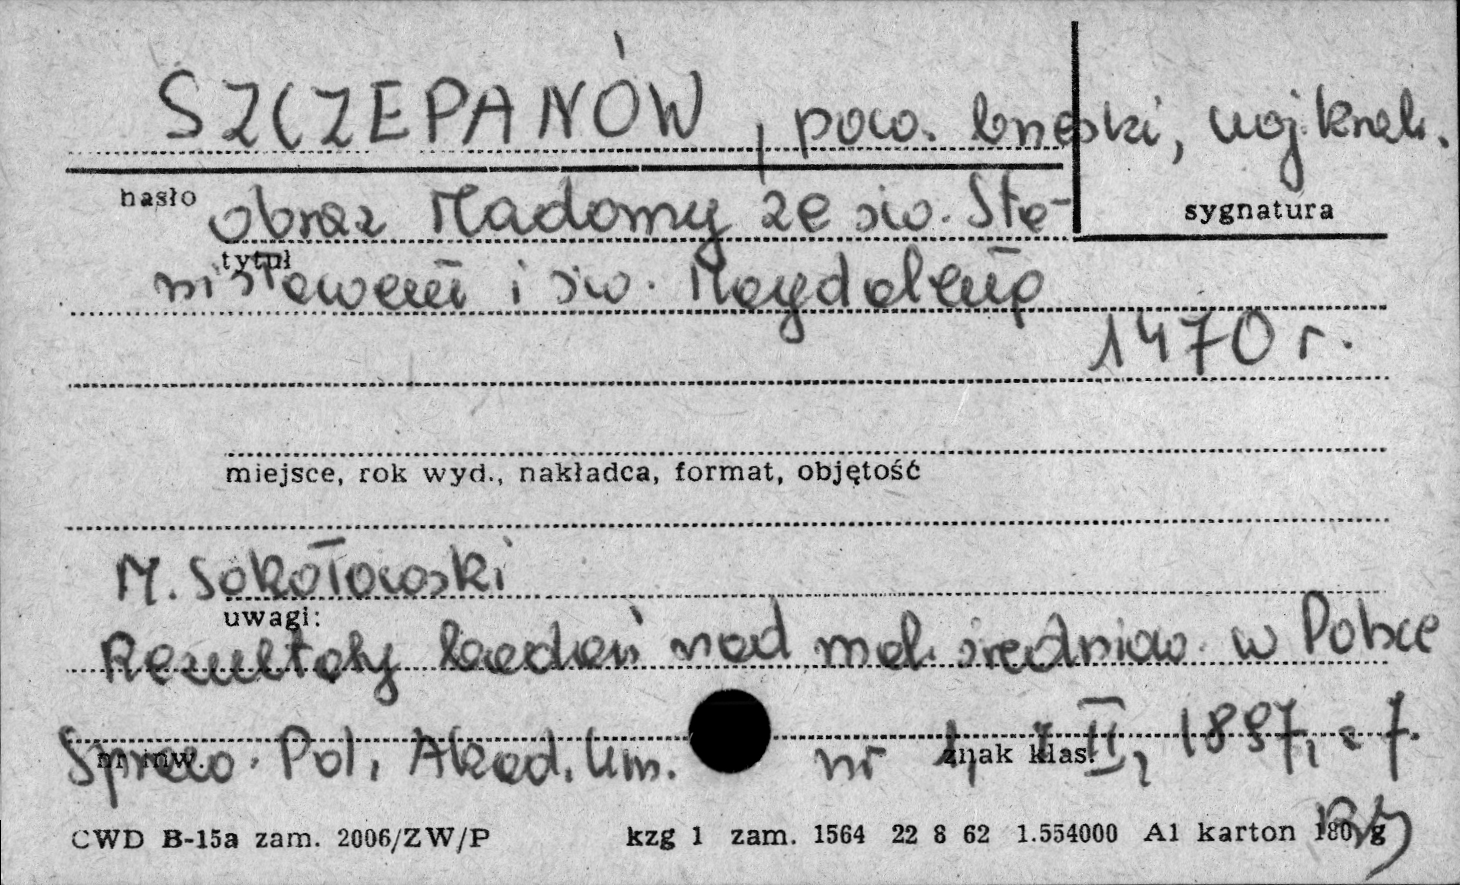 SZCZEPANÓW, pow. brzeski, woj. krak.
hasło
sygnatura
obraz Madonny ze św. Sta-
tytuł
nisławem i św. Magdaleną
1470 r.
miejsce, rok wyd., nakładca, format, objętość
M. Sokołowski
uwagi:
Rezultaty badań nad mal. średniow. w Polsce
Spraw. Pol. Akad. Um. nr II, 1897, s 7.
nr inw. znak klas.
CWD B-15a zam. 2006/ZW/P kzg 1 zam. 1564 22 8 62 1.554000 A1 karton 180 g